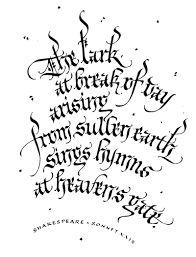 The lark
at break of day
arising
from sullen earth
sings hymns
at heaven's gate.
SHAKESPEARE • SONNET XXIX